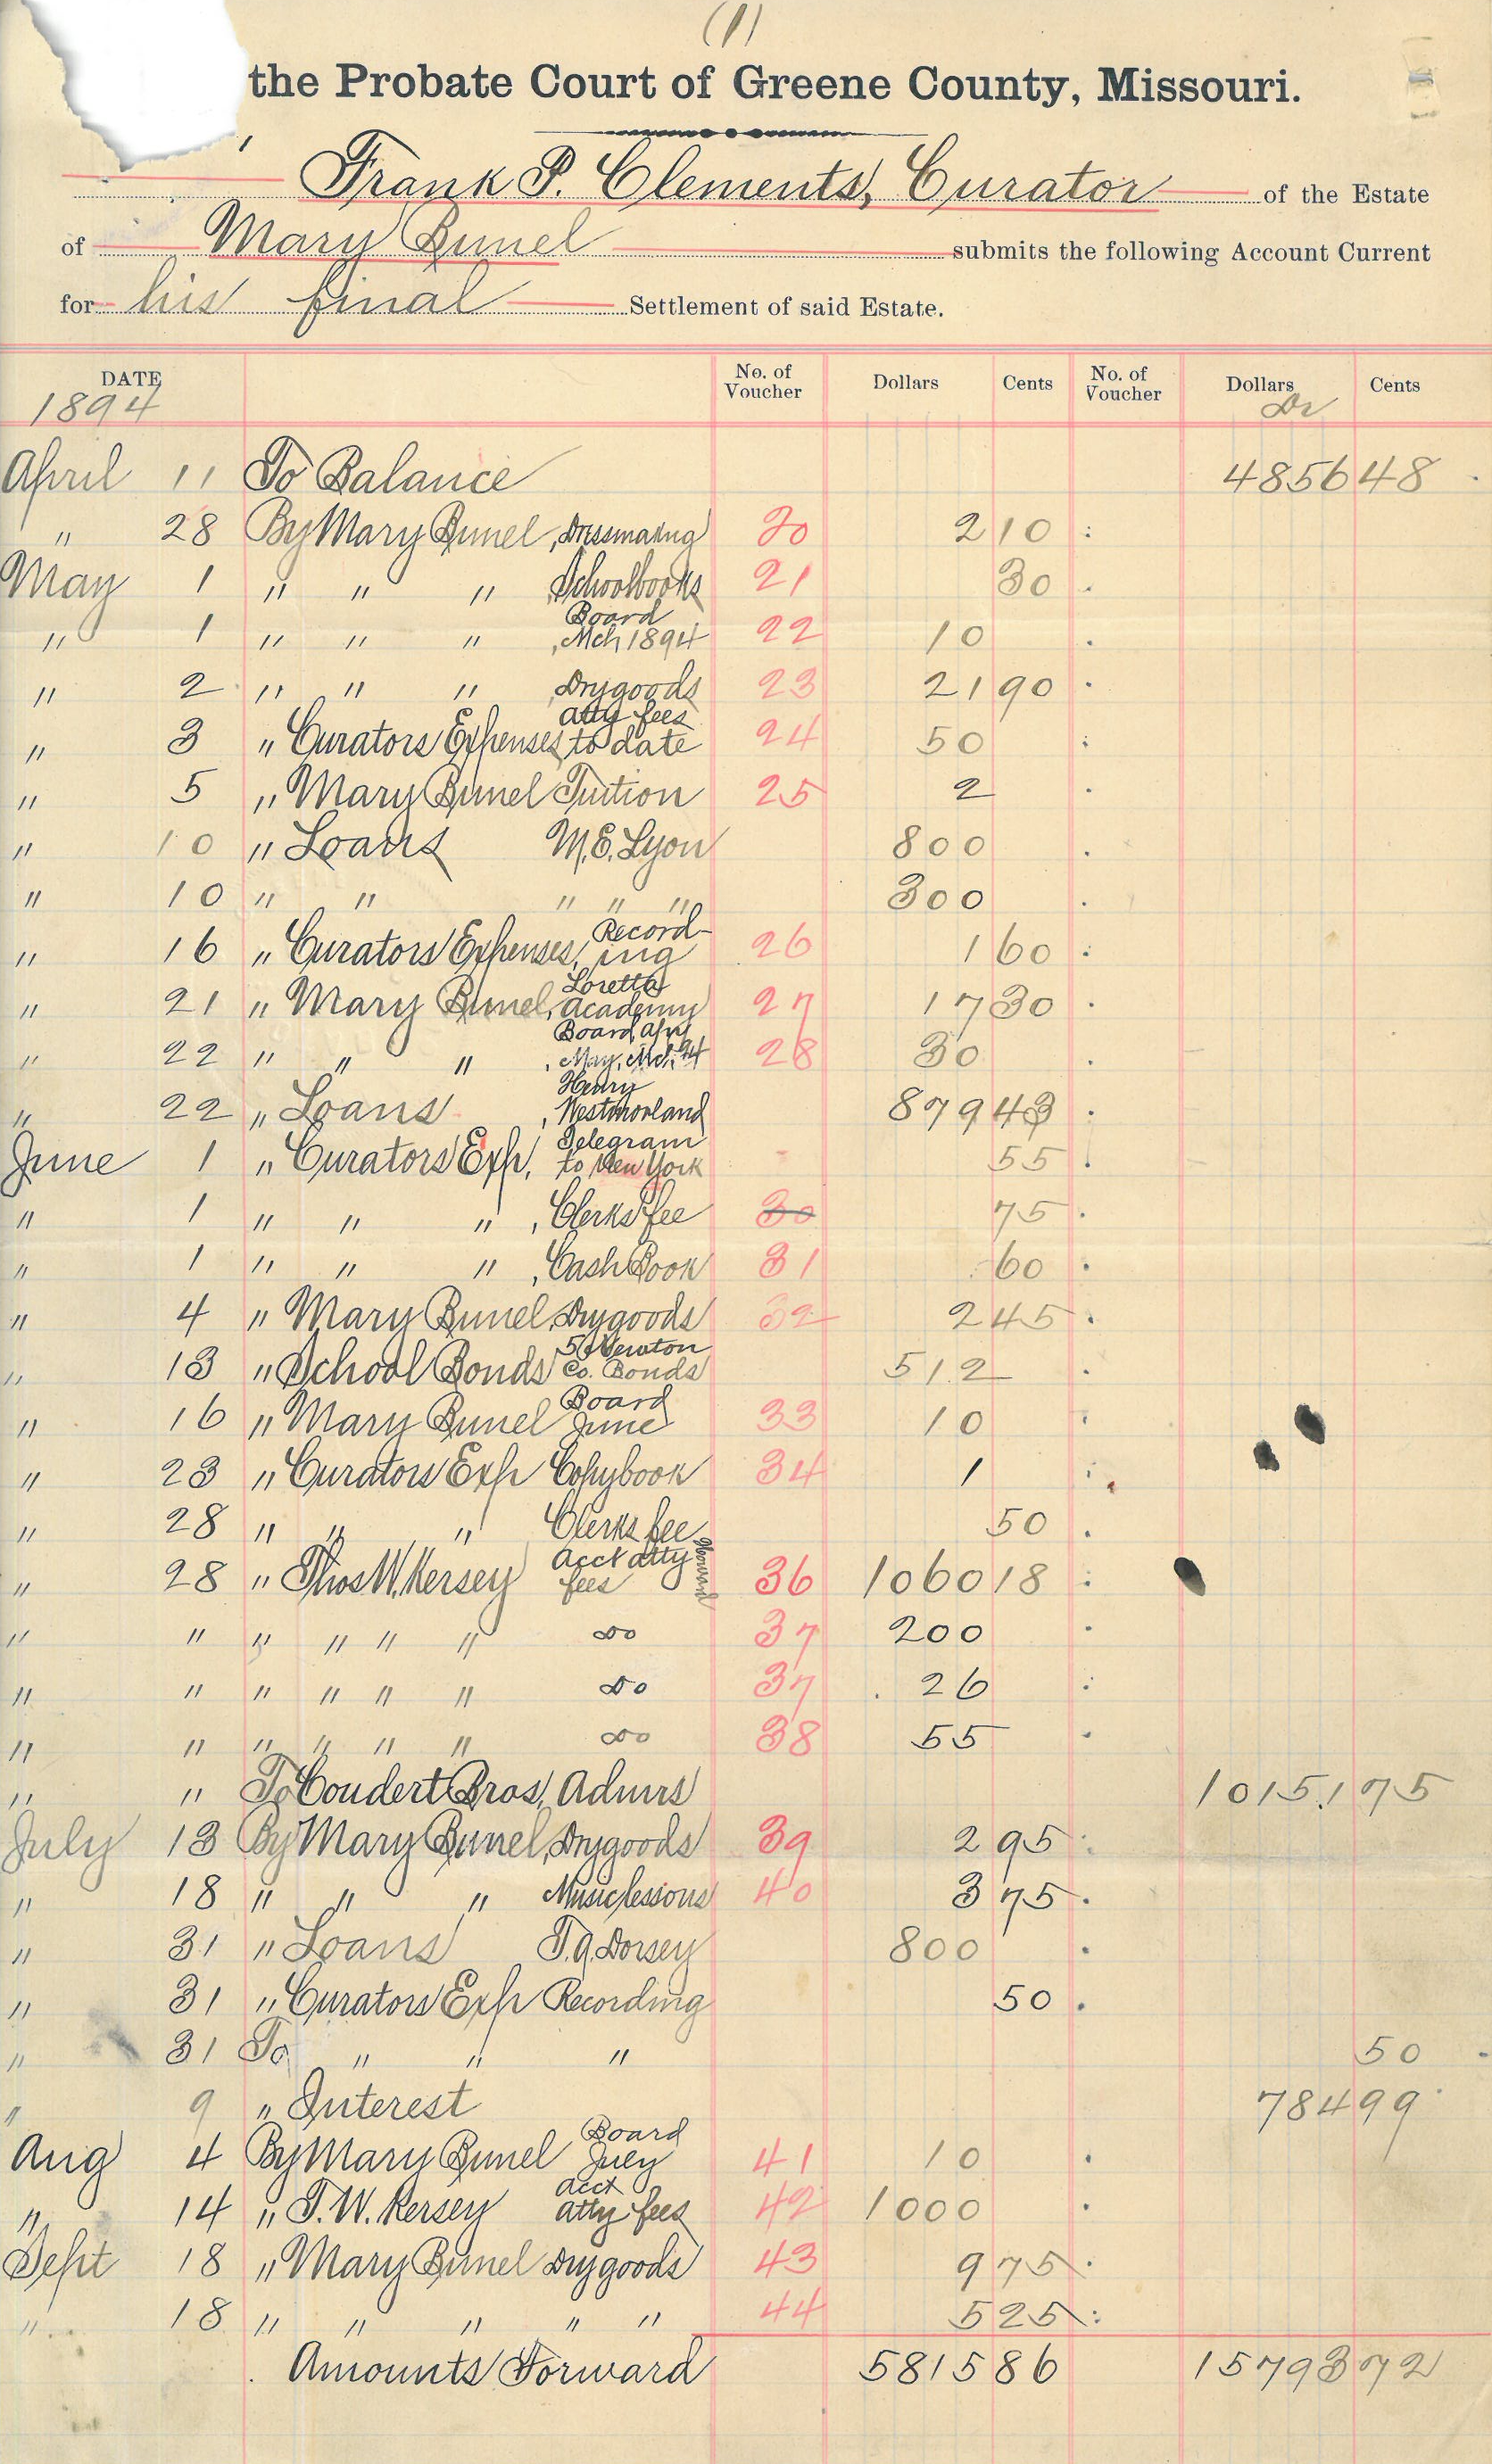 (1)
the Probate Court of Greene County, Missouri.
Frank P. Clements, Curator of the Estate
of Mary Bunel submits the following Account Current
for his final Settlement of said Estate.
DATE No. of Voucher Dollars Cents No. of Voucher Dollars Cents
1894 Dr
April 11 To Balance 4856 48
" 28 By Mary Bunel, Dressmaking 20 2 10
May 1 " " " , Schoolbooks 21 30
" 1 " " " , Board Mch 1894 22 10
" 2 " " " , Drygoods 23 21 90
" 3 " Curators Expenses, atty fees to date 24 50
" 5 " Mary Bunel Tuition 25 2
" 10 " Loans M. E. Lyon 800
" 10 " " " " " 300
" 16 " Curators Expenses, Record-ing 26 1 60
" 21 " Mary Bunel, Loretta Academy 27 17 30
" 22 " " " , Board, Apr, May, Mch 94 28 30
" 22 " Loans , Henry Westmorland 879 43
June 1 " Curators Exp, Telegram to New York 55
" 1 " " " , Clerks fee 30 75
" 1 " " " , Cash Book 31 60
" 4 " Mary Bunel, Drygoods 32 2 45
" 13 " School Bonds 5 Newton Co. Bonds 512
" 16 " Mary Bunel Board June 33 10
" 23 " Curators Exp Copybook 34 1
" 28 " " " Clerks fee 50
" 28 " Thos W. Kersey Acct atty fees 36 1060 18
" " " " " " do 37 200
" " " " " " do 37 26
" " " " " " do 38 55
" " To Coudert Bros, Admrs 10151 75
July 13 By Mary Bunel, Drygoods 39 2 95
" 18 " " " Music lessons 40 3 75
" 31 " Loans T. A. Dorsey 800
" 31 " Curators Exp Recording 50
" 31 To " " " 50
" 9 " Interest 784 99
Aug 4 By Mary Bunel Board July 41 10
" 14 " T. W. Kersey acct atty fees 42 1000
Sept 18 " Mary Bunel Drygoods 43 9 75
" 18 " " " " " 44 5 25
Amounts Forward 5815 86 15793 72